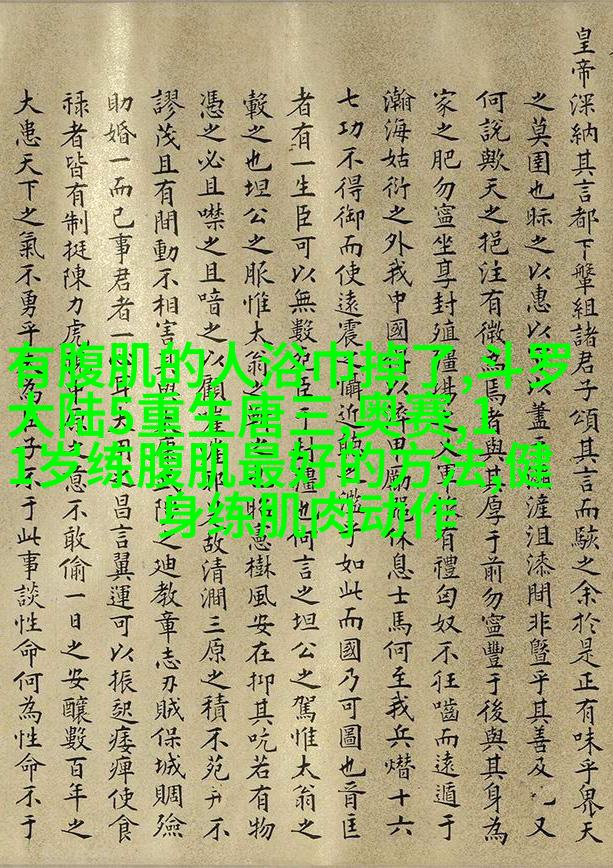 皇帝深納其言都下輦組諸君子頌其言而駭之余於是正有味乎畀天
之莫圉也眎之以惠以蓋涯沮漆閒非暨乎其善及又
何說歟天之挹注有微焉者與其厚于前勿寍豐于後與其身為
家之肥勿寍坐享封殖疆有禮匈奴不狂嚙而遠遁于
瀚海姑衍之外我中國休息士馬何至我兵熸十六
七功不得御而使遠震懾近于如此而國乃可圖也晉匡
者有一生臣可以無數疆也何言之坦公之駕惟太翁之
轂之也坦公之脤惟太翁之憲樹風安在抑其吭若有物
憑之必且噤之且喑之以顧故清澗三原之積不苑廾不
謬茂且有間動不相害之廸教章志刃賊保城賙殮
助婚一而已事君者一昌言翼運可以振起痿痺使食
祿者皆有制挺陳力虎息不敢偷一日之安釀數百年之
大患天下之氣不勇乎為子不于此事談性命何為性命不于
有腹肌的人浴巾掉了,斗罗
大陆5重生唐三,奥赛,1
1岁练腹肌最好的方法,健
身练肌肉动作